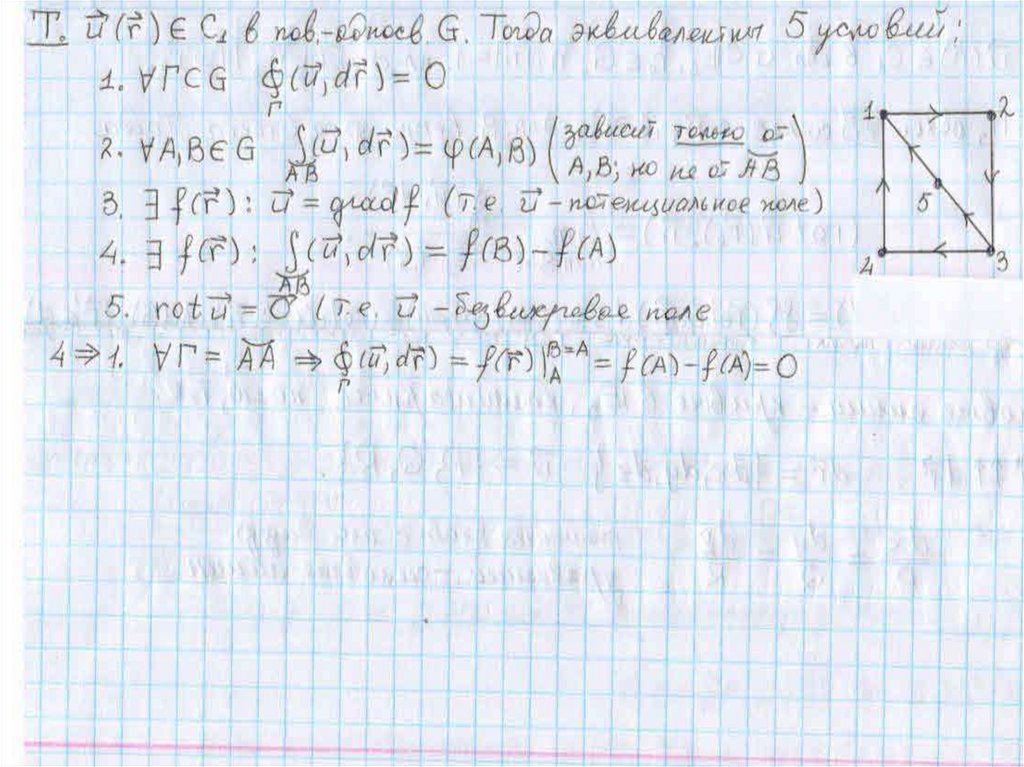 Т. u⃗(r⃗) ∈ C₁ в пов.-односв. G. Тогда эквивалентны 5 условий:
1. ∀Γ⊂G ∮_Γ(u⃗,dr⃗) = 0
2. ∀A,B∈G ∫_{A͝B}(u⃗,dr⃗) = φ(A,B) (зависит только от
A,B; но не от A͝B)
3. ∃ f(r⃗): u⃗ = grad f (т.е. u⃗ – потенциальное поле)
4. ∃ f(r⃗): ∫_{A͝B}(u⃗,dr⃗) = f(B) – f(A)
5. rot u⃗ = 0⃗ (т.е. u⃗ – безвихревое поле
4 ⇒ 1. ∀Γ = A͝A ⇒ ∮_Γ(u⃗,dr⃗) = f(r⃗)|_A^{B=A} = f(A) – f(A) = 0
1 2
5
4 3